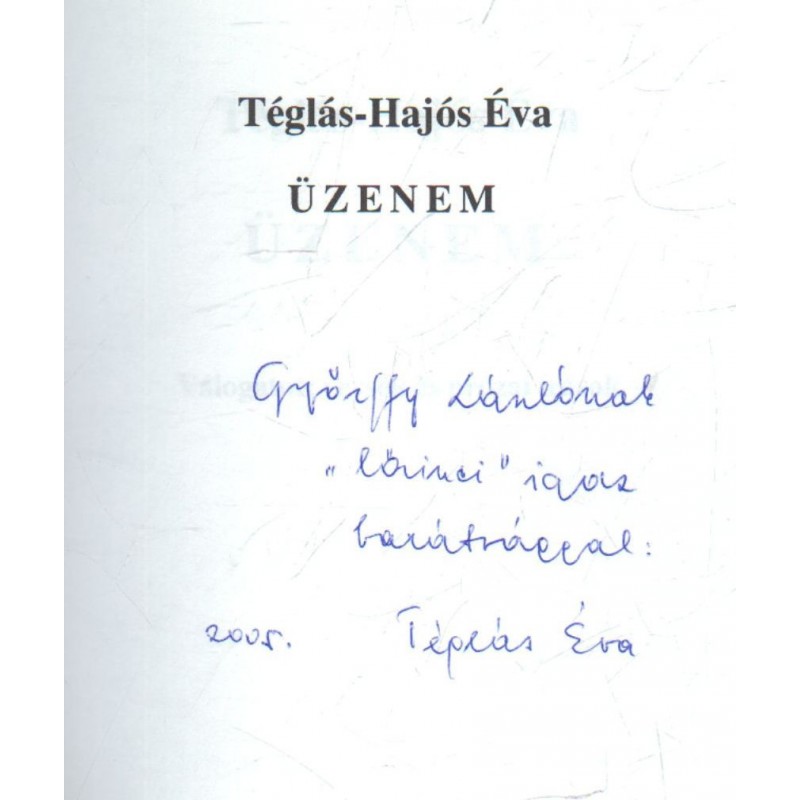 Téglás-Hajós Éva
ÜZENEM
Győrffy Lászlónak
„lőrinci" igaz
barátsággal:
2005. Téglás Éva